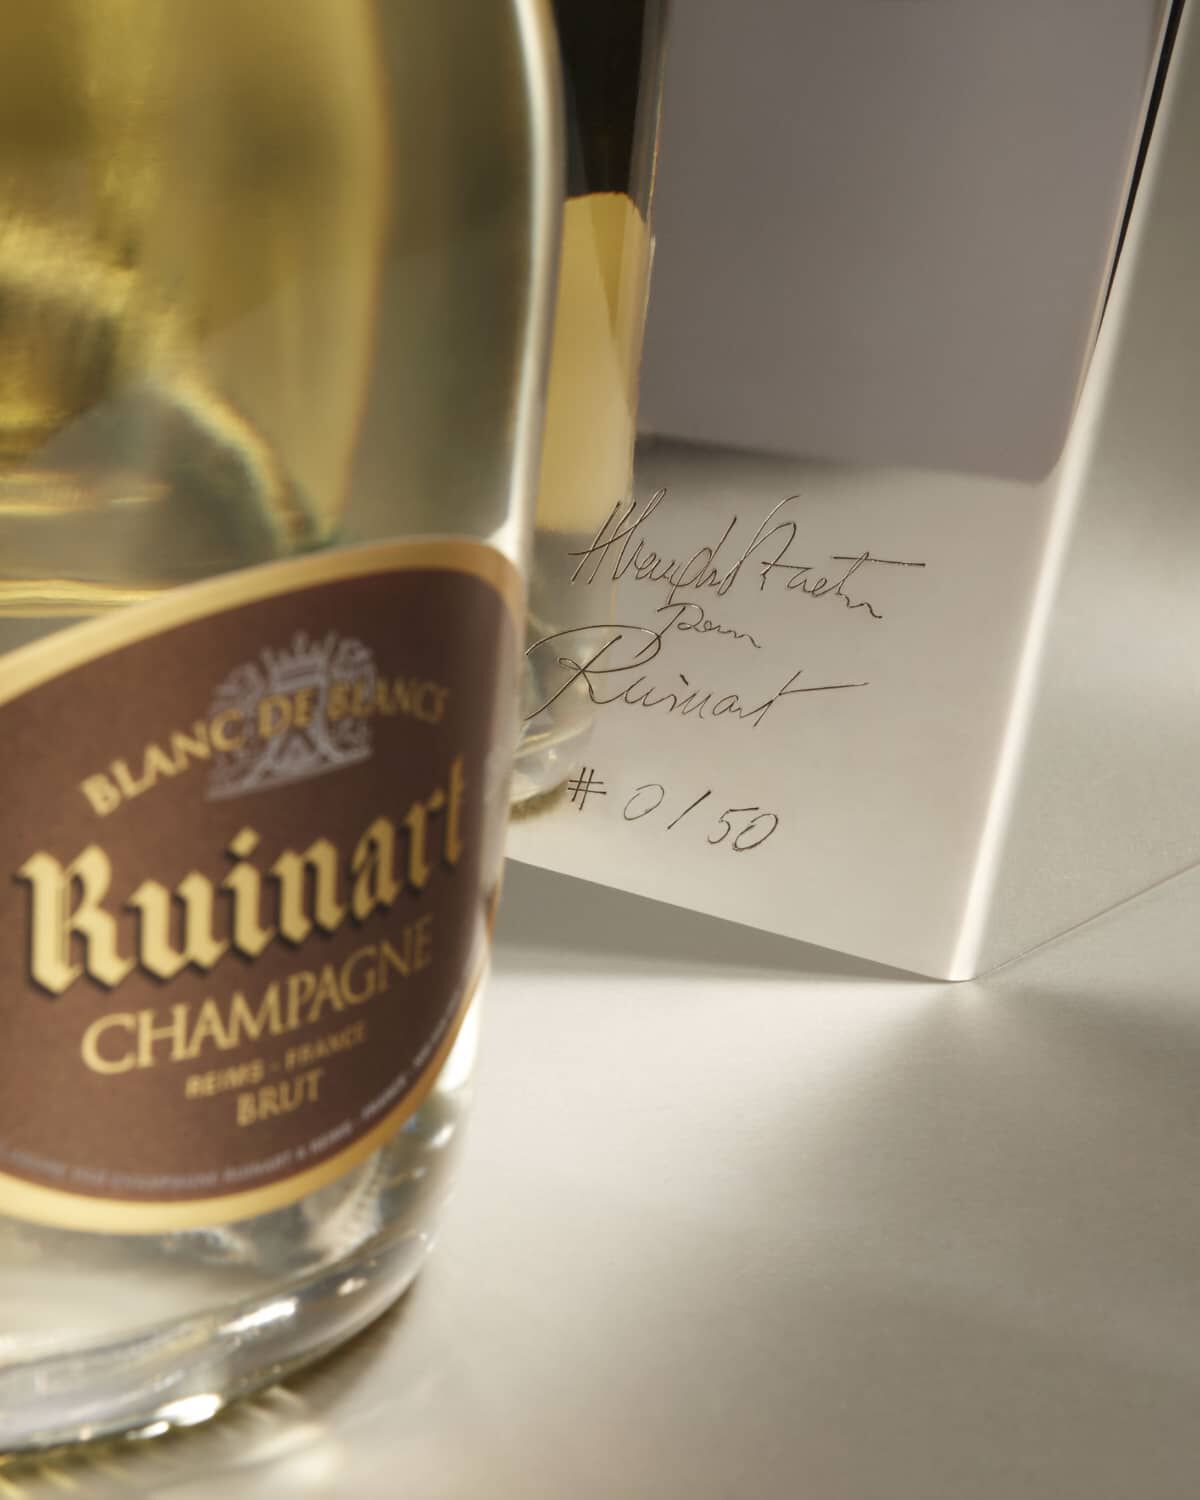 BLANC DE BLANCS
Ruinart
CHAMPAGNE
REIMS - FRANCE
BRUT
pour
Ruinart
# 0/50